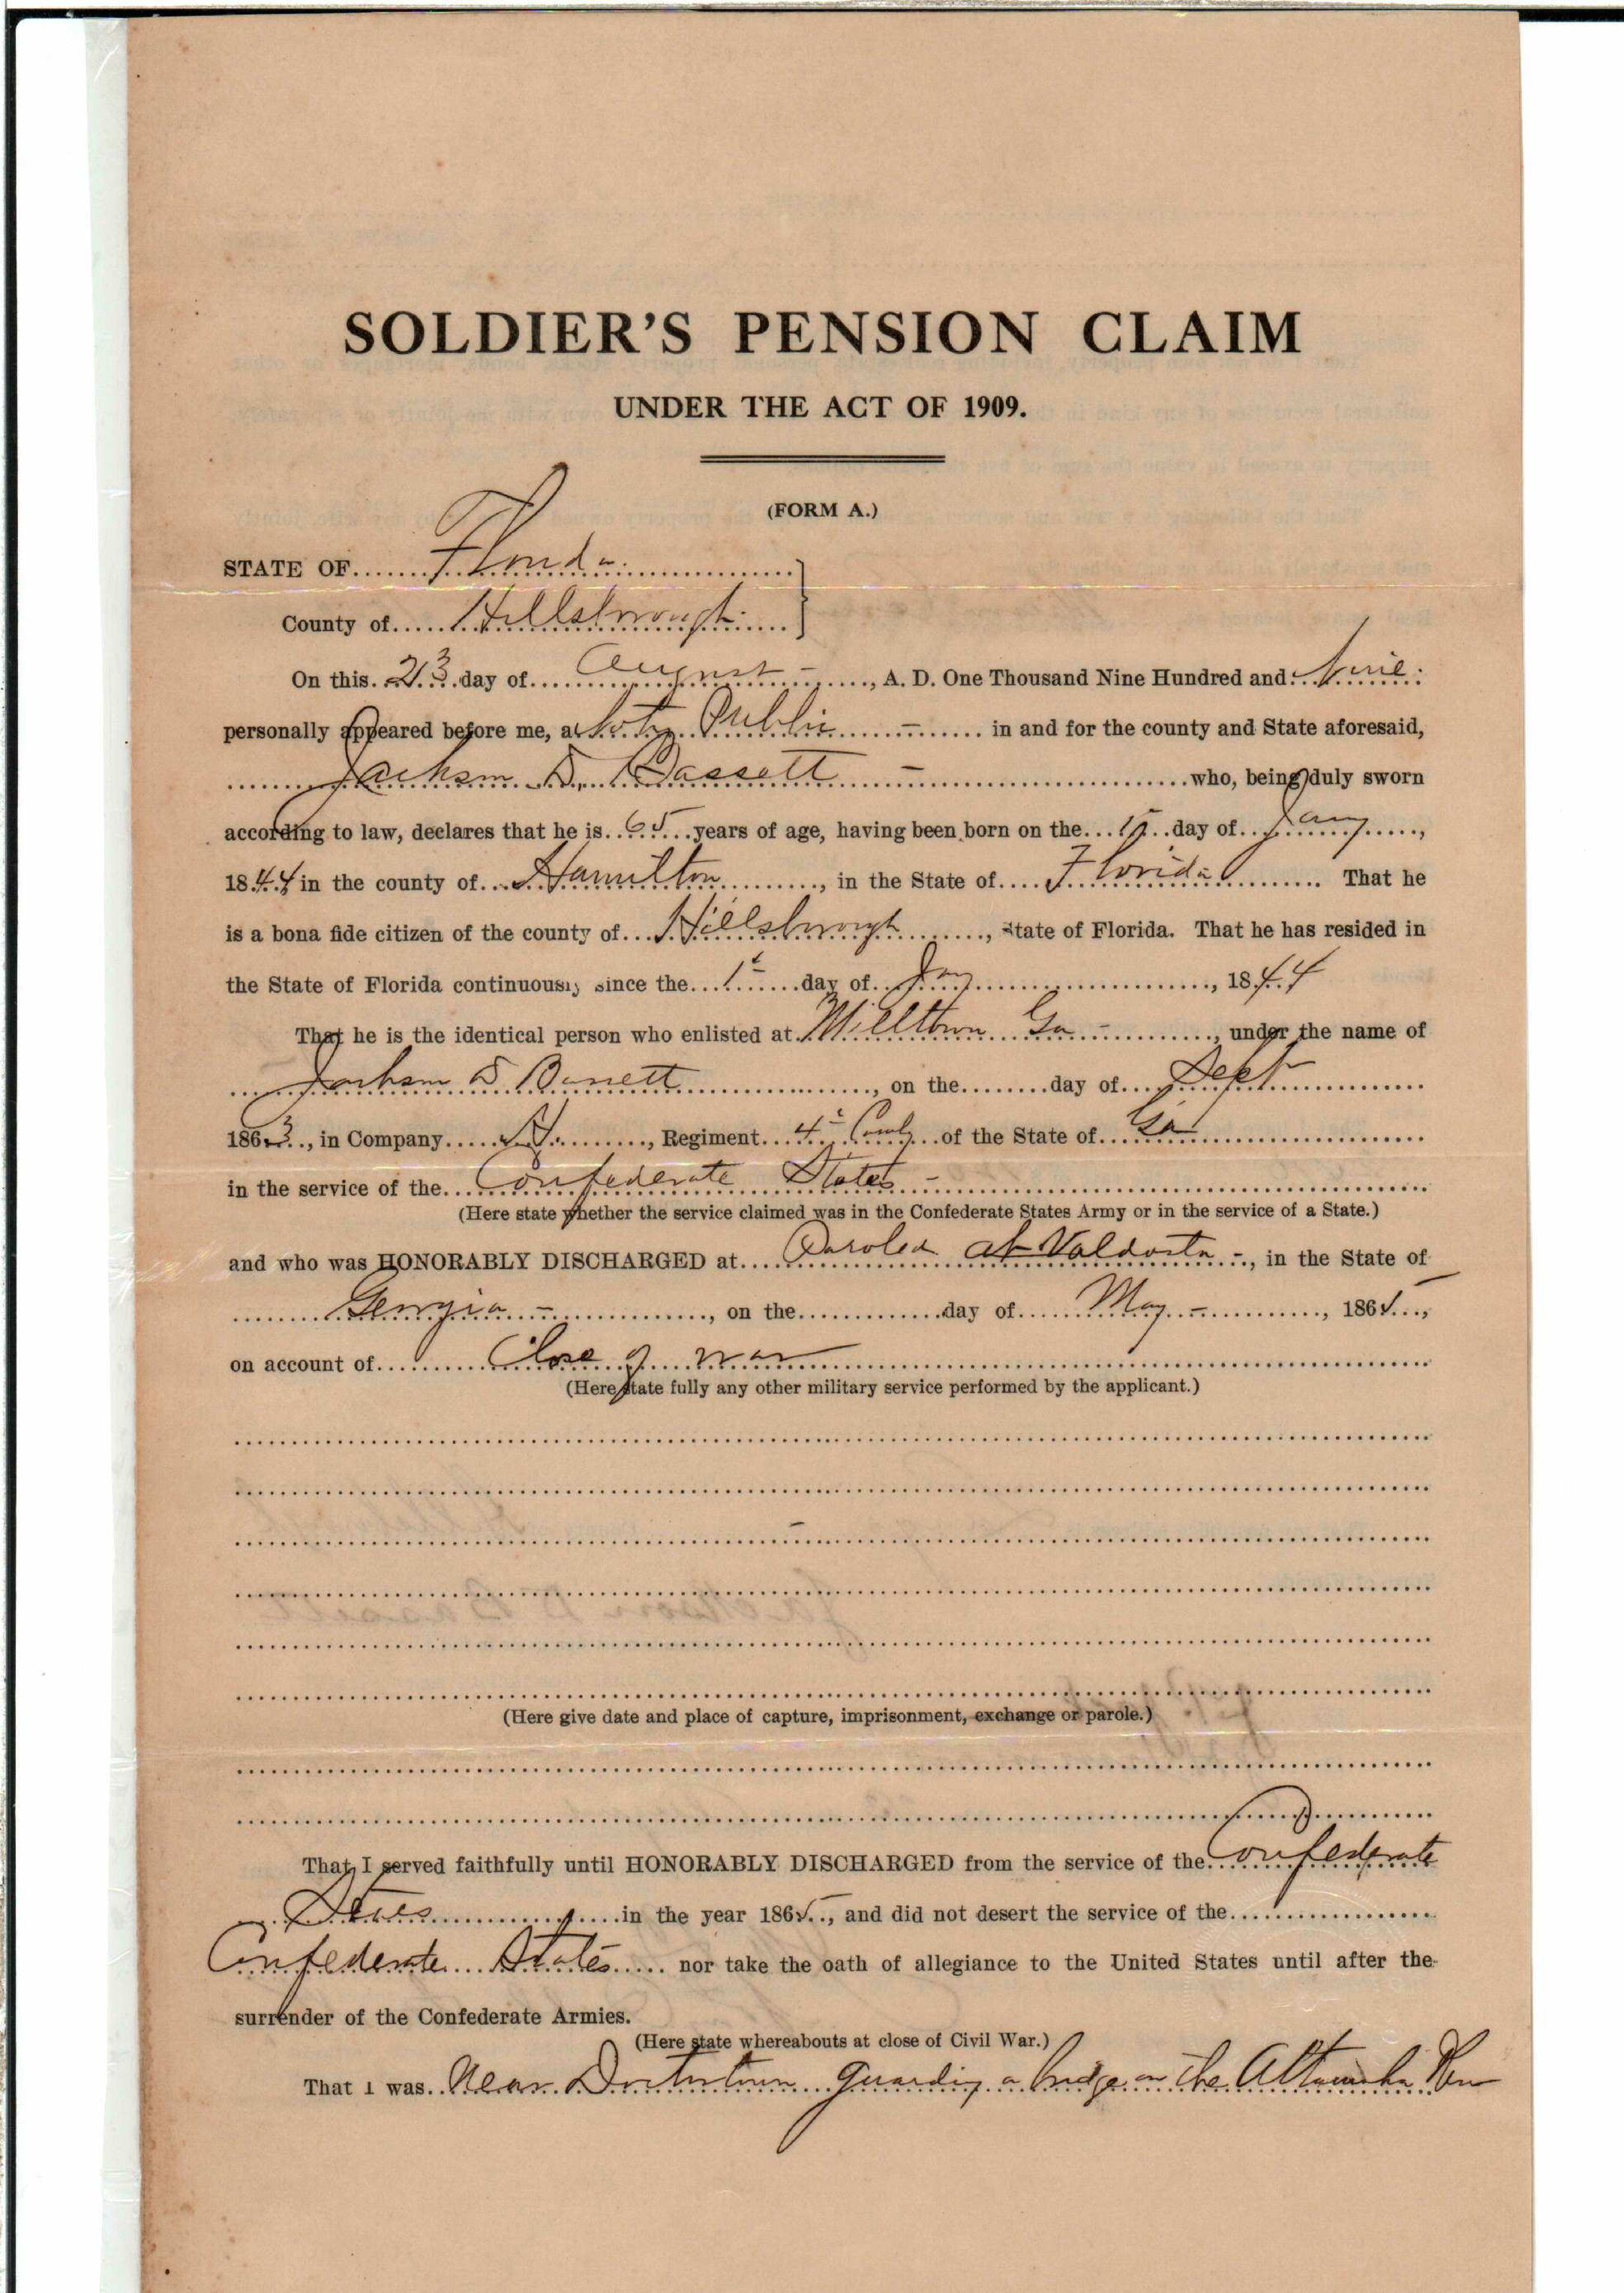 SOLDIER'S PENSION CLAIM
UNDER THE ACT OF 1909.
(FORM A.)
STATE OF Florida
County of Hillsbrough
On this 23 day of August, A. D. One Thousand Nine Hundred and Nine
personally appeared before me, a Noty Public in and for the county and State aforesaid,
Jackson D. Bassett who, being duly sworn
according to law, declares that he is 65 years of age, having been born on the day of Jany,
1844 in the county of Hamilton, in the State of Florida That he
is a bona fide citizen of the county of Hillsbrough, State of Florida. That he has resided in
the State of Florida continuously since the 1st day of Jany, 1844
That he is the identical person who enlisted at Milltown Ga, under the name of
Jackson D Bassett, on the day of Sept
1863, in Company, Regiment 4 of the State of Ga
in the service of the Confederate States
(Here state whether the service claimed was in the Confederate States Army or in the service of a State.)
and who was HONORABLY DISCHARGED at Paroled at Valdosta, in the State of
Georgia, on the day of May, 1865,
on account of Close of war
(Here state fully any other military service performed by the applicant.)
(Here give date and place of capture, imprisonment, exchange or parole.)
That I served faithfully until HONORABLY DISCHARGED from the service of the Confederate
States in the year 1865, and did not desert the service of the
Confederate States nor take the oath of allegiance to the United States until after the
surrender of the Confederate Armies.
(Here state whereabouts at close of Civil War.)
That I was Near Doctortown guarding a bridge on the Altamaha River